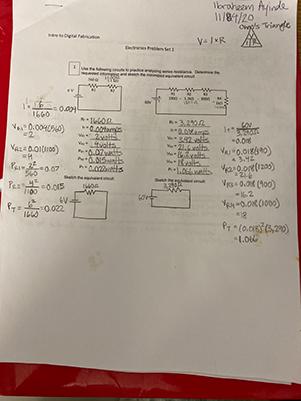 Ibraheem Ayinde
11/84/20
Ohm's Triangle
V = I x R
Intro to Digital Fabrication
Electronics Problem Set 1
1
Use the following circuits to practice analyzing series resistance. Determine the
requested information and sketch the minimized equivalent circuit.
6 V
60V
R1
R2
R3
R4
I = 6 / 1660 = 0.004
VR1 = 0.004(560)
= 2
VR2 = 0.01(1100)
= 4
PR1 = 2² / 560 = 0.07
PR2 = 4² / 1100 = 0.015
PT = 6² / 1660 = 0.022
RT = 1660Ω
0.004amps
2 volts
4 volts
0.07 watts
0.015 watts
0.022 watts
Sketch the equivalent circuit:
1660Ω
6V
RT = 3,290Ω
0.018 amps
3.42 volts
21.6 volts
16.2 volts
18 volts
1.066 watts
Sketch the equivalent circuit:
3,290Ω
60V
IT = 60V / 3,290Ω
= 0.018
VR1 = 0.018(190)
= 3.42
VR2 = 0.018(1200)
= 21.6
VR3 = 0.018(900)
= 16.2
VR4 = 0.018(1000)
= 18
PT = (0.018)²(3,290)
= 1.066